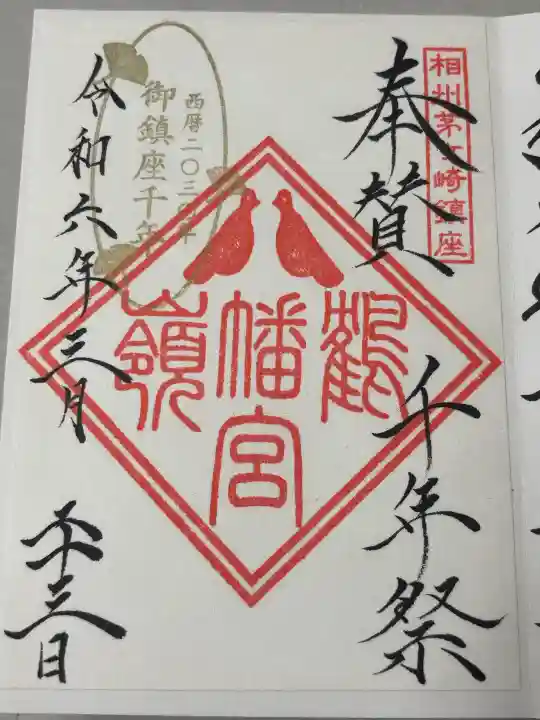 相州茅ヶ崎鎮座
奉賛 千年祭
鶴嶺
八幡宮
西暦二〇三〇年
御鎮座千年
令和六年三月 二十三日